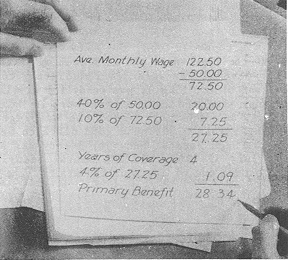 Ave. Monthly Wage 122.50
- 50.00
72.50
40% of 50.00 20.00
10% of 72.50 7.25
27.25
Years of Coverage 4
4% of 27.25 1.09
Primary Benefit 28.34